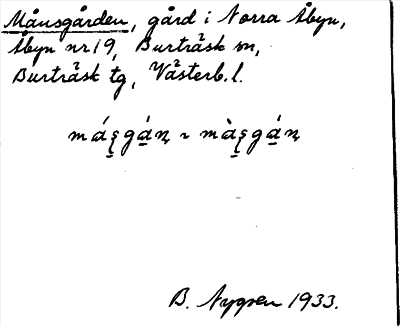 Månsgården, gård i Norra Åbyn,
Åbyn nr 19, Burträsk sn,
Burträsk tg, Västerb. l.
B. Nygren 1933.